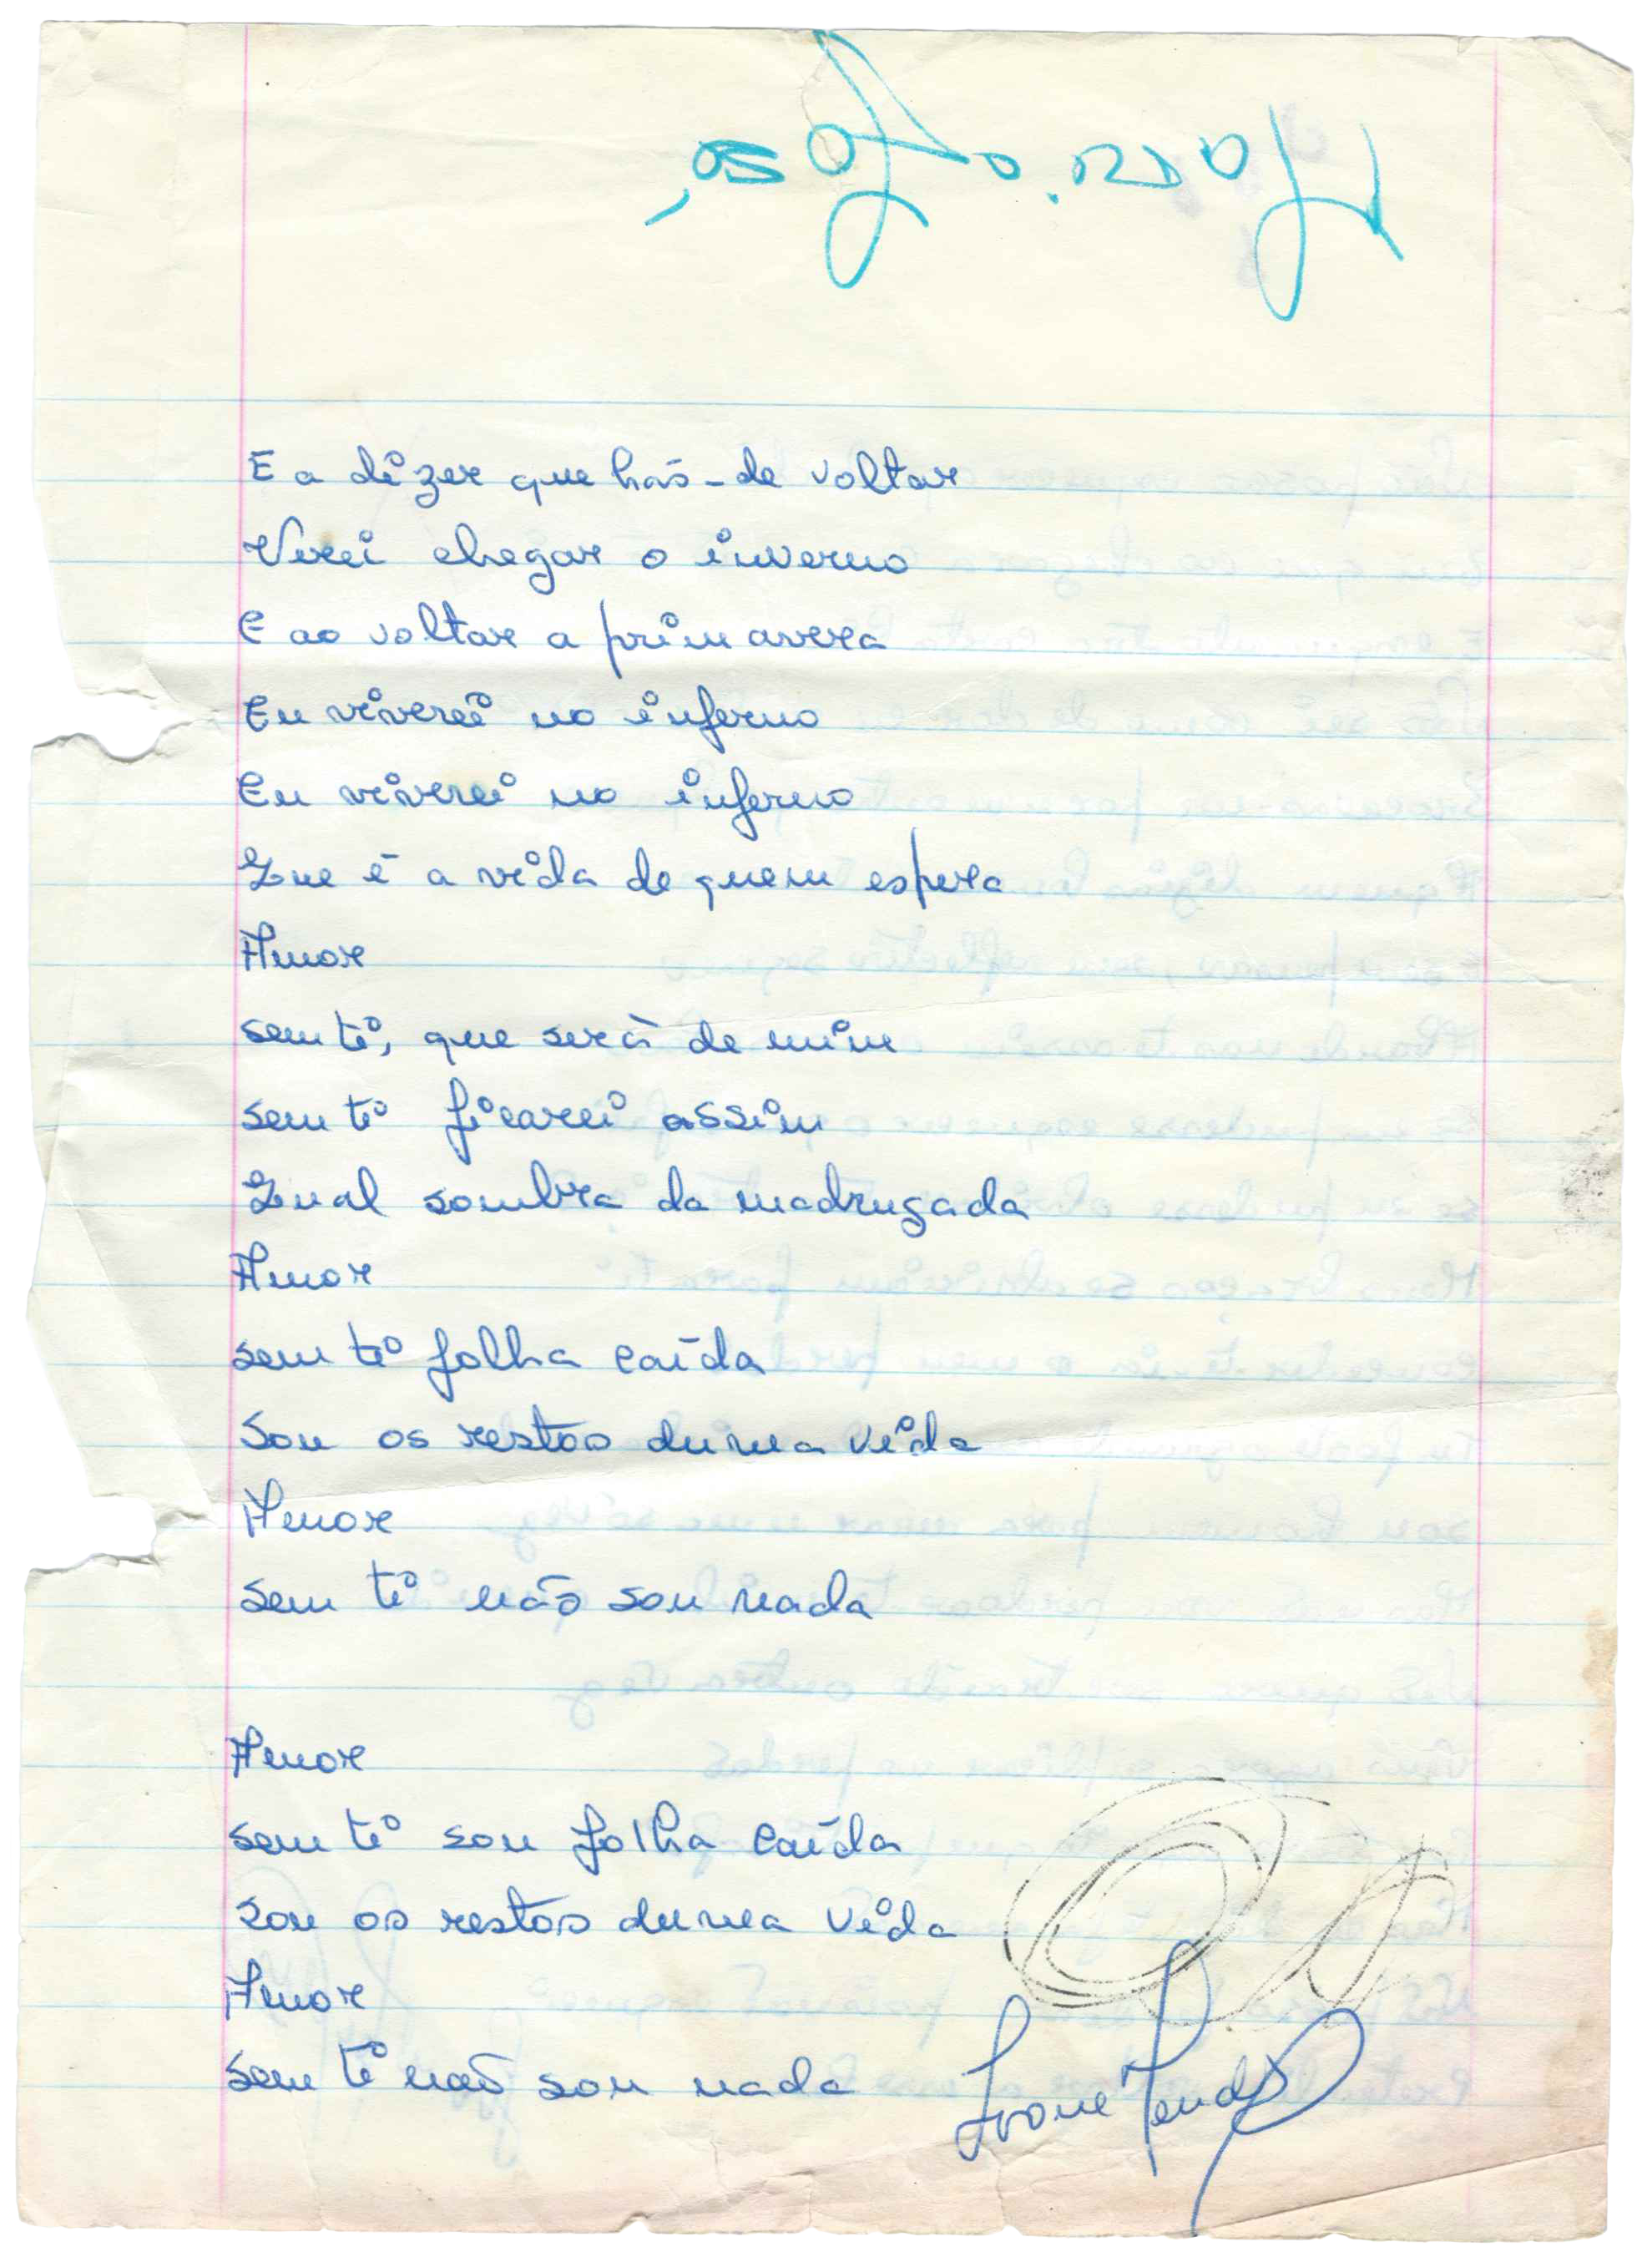 E a dizer que hás-de voltar
Verei chegar o inverno
E ao voltar a primavera
Eu viverei no inferno
Eu viverei no inferno
Que é a vida de quem espera
Amor
sem ti, que será de mim
sem ti ficarei assim
Qual sombra da madrugada
Amor
sem ti folha caída
Sou os restos duma vida
Amor
sem ti não sou nada
Amor
sem ti sou folha caída
sou os restos duma vida
Amor
sem ti não sou nada